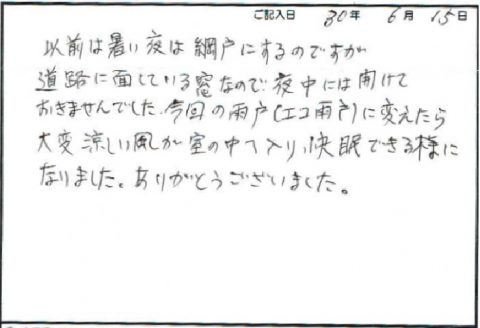 ご記入日 30年 6月 15日
以前は暑い夜は網戸にするのですが
道路に面している窓なので夜中には開けて
おきませんでした。今回の雨戸(エコ雨戸)に変えたら
大変涼しい風が室の中へ入り、快眠できる様に
なりました。ありがとうございました。